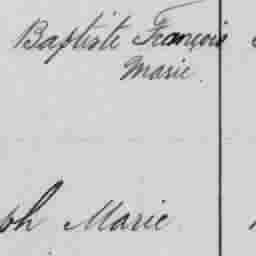 Baptiste François
Marie.
ph Marie